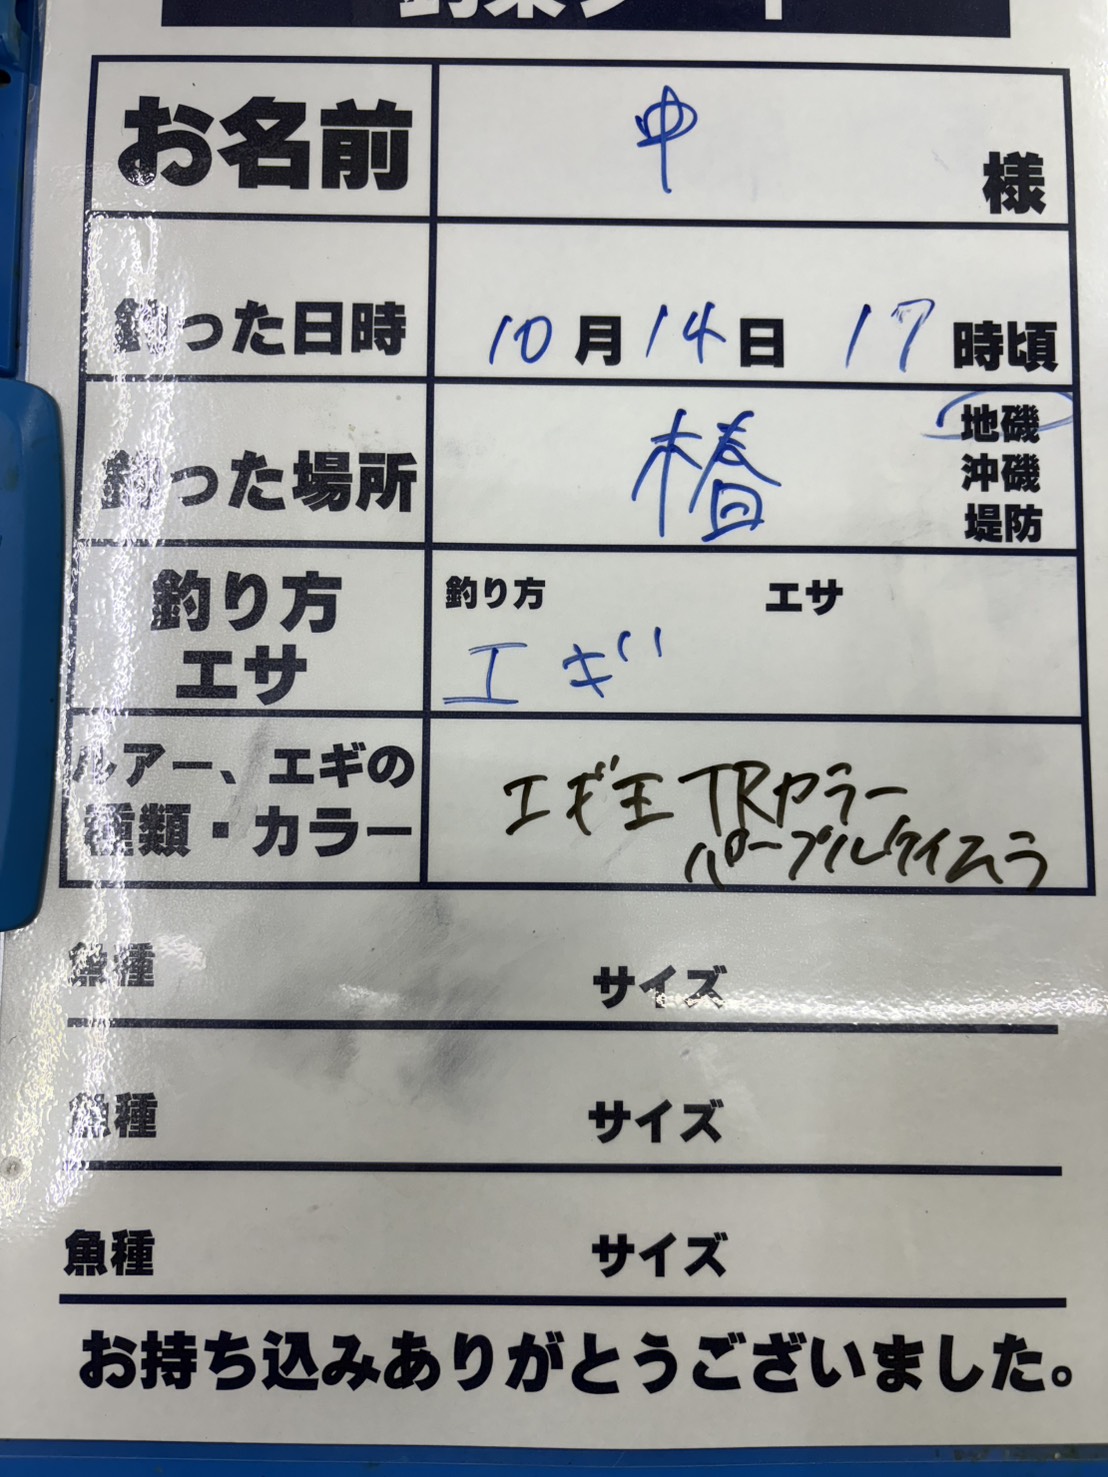 お名前 中 様
釣った日時 10月14日 17時頃
釣った場所 椿 地磯
沖磯
堤防
釣り方 エサ
釣り方 エサ
エギ
ルアー、エギの
種類・カラー
エギ王 TRカラー
パープルケイムラ
魚種 サイズ
魚種 サイズ
魚種 サイズ
お持ち込みありがとうございました。